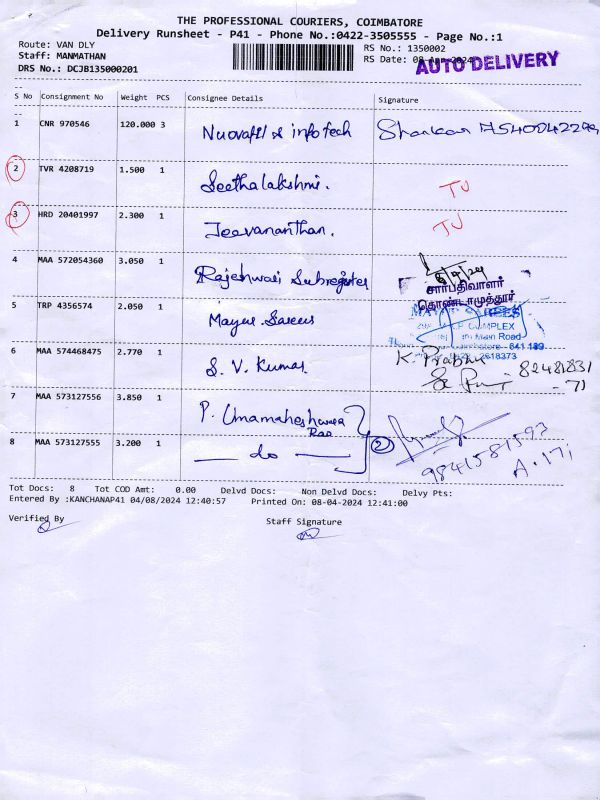 THE PROFESSIONAL COURIERS, COIMBATORE
Delivery Runsheet - P41 - Phone No.:0422-3505555 - Page No.:1
Route: VAN DLY
Staff: MANMATHAN
DRS No.: DCJB135000201
RS No.: 1350002
RS Date: 08-Apr-2024
AUTO DELIVERY
S No Consignment No Weight PCS Consignee Details Signature
1 CNR 970546 120.000 3 Shankar
2 TVR 4208719 1.500 1 Seethalakshmi. TJ
3 HRD 20401997 2.300 1 Jeevananthan. TJ
4 MAA 572054360 3.050 1 Rajeshwari Subregister
சார்பதிவாளர்
தொண்டாமுத்தூர்
5 TRP 4356574 2.050 1 Mayur Sarees
COMPLEX
Main Road
641 109
2618373
6 MAA 574468475 2.770 1 S. V. Kumar K. Prabhu
82481831
- 71
7 MAA 573127556 3.850 1 P. Umamaheshwara
Rao
8 MAA 573127555 3.200 1 — do — 2
9841581593
Tot Docs: 8 Tot COD Amt: 0.00 Delvd Docs: Non Delvd Docs: Delvy Pts:
Entered By :KANCHANAP41 04/08/2024 12:40:57 Printed On: 08-04-2024 12:41:00
Verified By Staff Signature